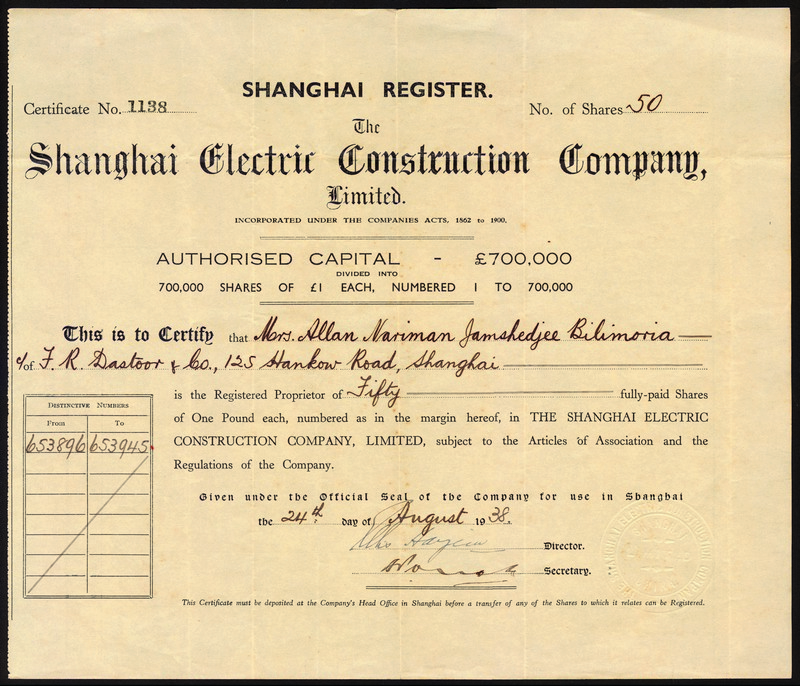 SHANGHAI REGISTER.
Certificate No. 1138
No. of Shares 50
The
Shanghai Electric Construction Company,
Limited.
INCORPORATED UNDER THE COMPANIES ACTS, 1862 to 1900.
AUTHORISED CAPITAL - £700,000
DIVIDED INTO
700,000 SHARES OF £1 EACH, NUMBERED 1 TO 700,000
This is to Certify that Mrs. Allan Nariman Jamshedjee Bilimoria
c/o of F. R. Dastoor & Co., 125 Hankow Road, Shanghai
is the Registered Proprietor of Fifty fully-paid Shares
of One Pound each, numbered as in the margin hereof, in THE SHANGHAI ELECTRIC
CONSTRUCTION COMPANY, LIMITED, subject to the Articles of Association and the
Regulations of the Company.
DISTINCTIVE NUMBERS
From To
653896 653945
Given under the Official Seal of the Company for use in Shanghai
the 24th. day of August 1938.
Director.
Secretary.
This Certificate must be deposited at the Company's Head Office in Shanghai before a transfer of any of the Shares to which it relates can be Registered.